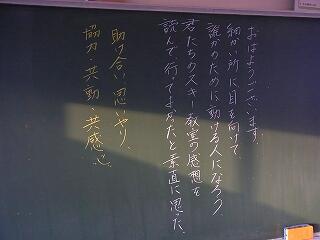 おはようございます。
細かい所に目を向けて、
誰かのために動ける人になろう。
君たちのスキー教室の感想を
読んで、行ってよかったと素直に思った。
助け合い、思いやり、
協力・共動・共感・心